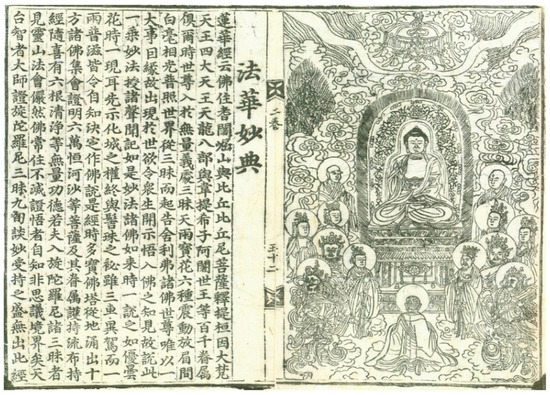 二卷
五十二
法華妙典
蓮華經云佛住耆闍崛山與比丘比丘尼菩薩釋提桓因大梵
天王四大天王天龍八部與韋提希子阿闍世王等百千眷屬
俱爾時世尊入於無量義處三昧天雨寶花六種震動放眉間
白毫相光普照世界從三昧而起告舍利弗諸佛世尊唯以一
大事因緣故出現於世欲令衆生開示悟入佛之知見故說此
一乘妙法授諸聲聞記如是妙法諸佛如來時一說之如優曇
花時一現耳先示化城之權終與髻珠之祕雖三車異駕而一
雨普滋皆令自知決定作佛說是經時多寶佛塔從地涌出十
方諸佛集會證明六萬恒河沙等菩薩及其眷屬護持流布持
經隨喜有六根清淨等無量功德若夫入旋陀羅尼諸三昧者
見靈山法會儼然佛常住不滅證悟者自知非思議境界矣天
台智者大師證旋陀羅尼三昧九旬談妙受持之盛無出此經